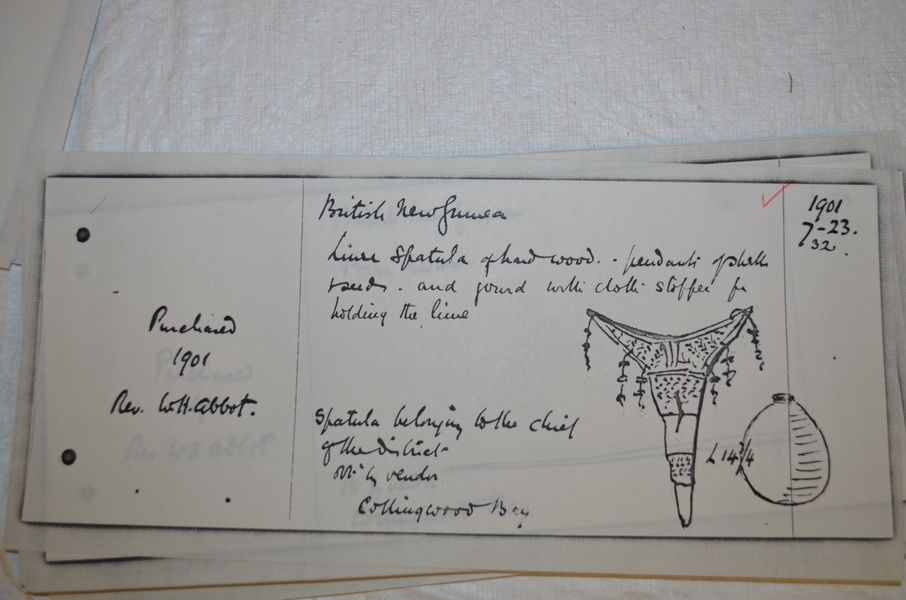 Purchased
1901
Rev. W.H. Abbot.
British New Guinea
Lime Spatula of hard wood. - pendants of shells
& seeds. - and gourd with cloth stopper for
holding the lime
Spatula belonging to the chief
of the District
by vendor
Collingwood Bay
L 14 3/4
1901
7-23.
32.